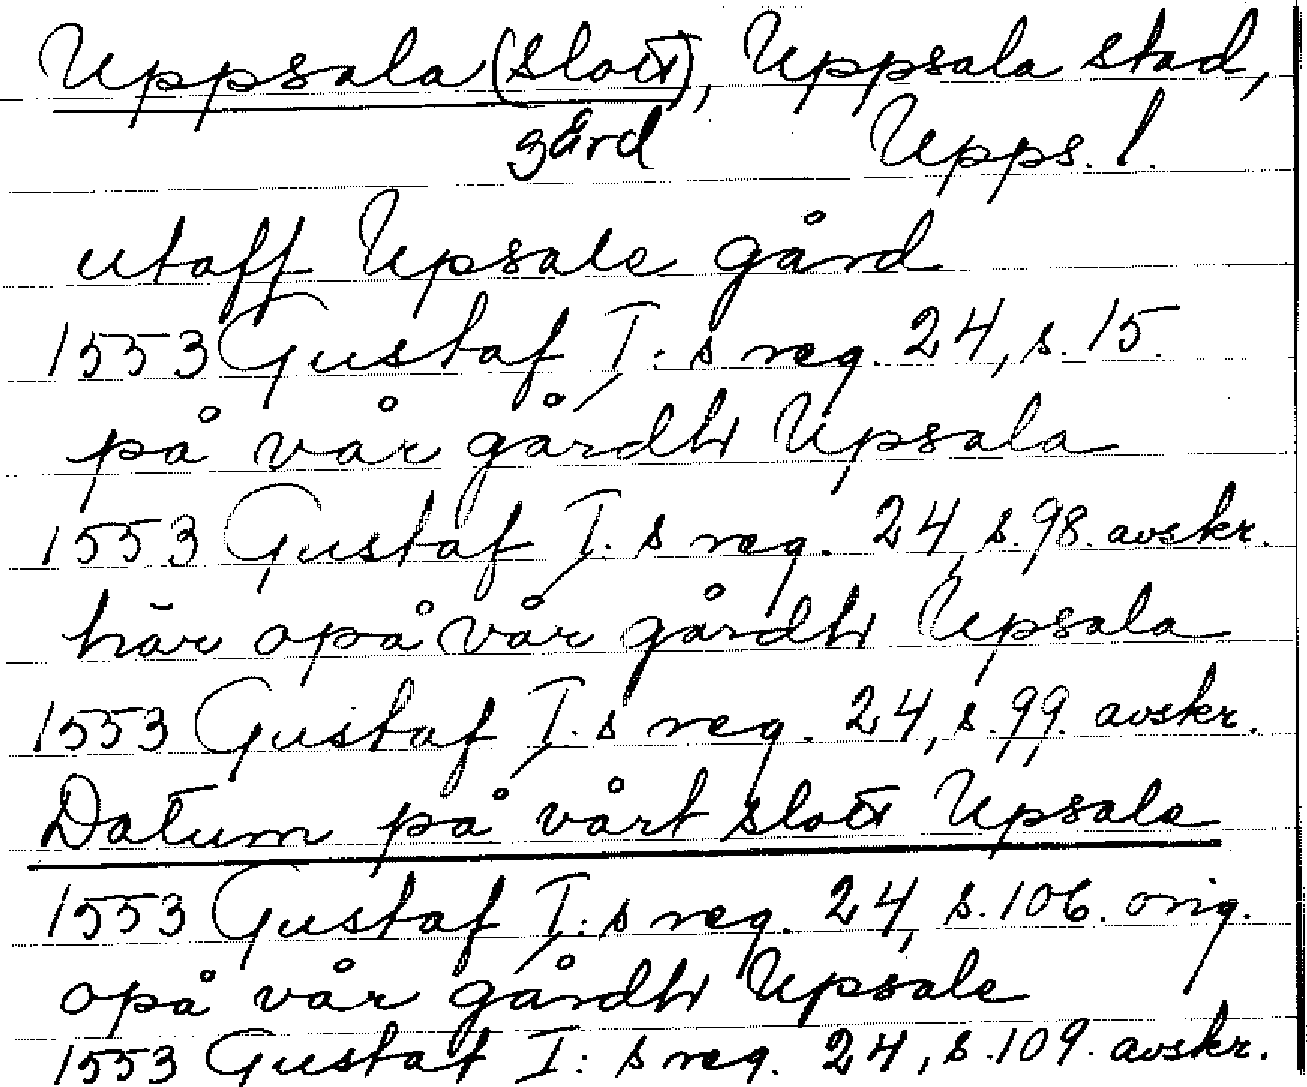 Uppsala (slott), Uppsala stad,
gård Upps. l.
utaff Upsale gård
1553 Gustaf I: s reg. 24, s. 15.
på vår gårdh Upsala
1553 Gustaf I: s reg. 24, s. 98. avskr.
här opå vår gårdh Upsala
1553 Gustaf I: s reg. 24, s. 99. avskr.
Datum på vårt slott Upsale
1553 Gustaf I: s reg. 24, s. 106. orig.
opå vår gårdh Upsale
1553 Gustaf I: s reg. 24, s. 109. avskr.